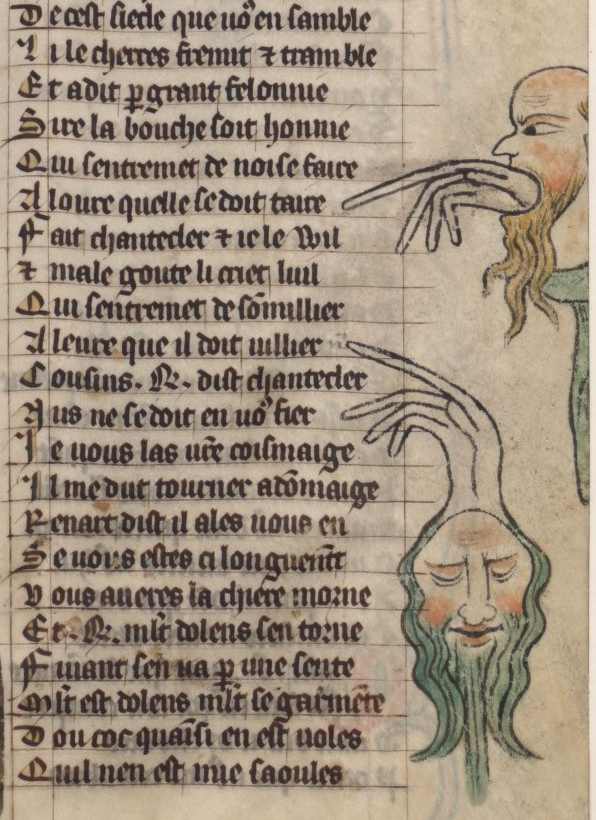 De cest siecle que uō en samble
Li lecherres fremut ⁊ tramble
Et a dit ꝑ grant felonnie
Sire la bouche soit honnie
Qui sentremet de noise faire
A loure quelle se doit taire
Fait chantecler ⁊ ie le wil
⁊ male goute li criet luil
Qui sentremet de sōmillier
A leure que il doit uillier
Cousins .R. dist chantecler
Nus ne se doit en uō fier
De uous las ur̄e coismaige
Il me dut tourner a dōmaige
Renart dist il ales uous en
Se uous estes ci longuemt̄
Vous aueres la chiere morne
Et .R. ml̄t dolens sen torne
Fuiant sen ua ꝑ une sente
Ml̄t est dolens ml̄t se garmēte
Dou coc quaīsi en est uoles
Quil nen est mie saoules